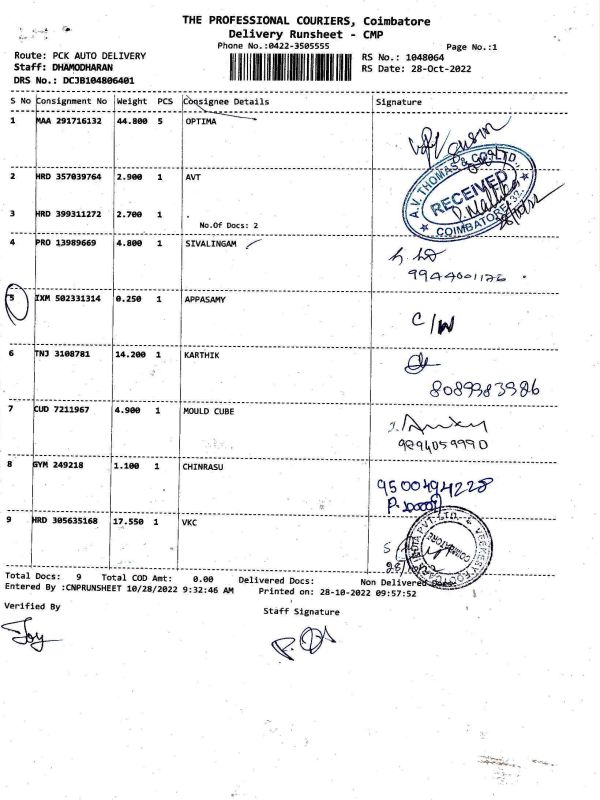 THE PROFESSIONAL COURIERS, Coimbatore
Delivery Runsheet - CMP
Phone No.:0422-3505555
Page No.:1
Route: PCK AUTO DELIVERY
RS No.: 1048064
Staff: DHAMODHARAN
RS Date: 28-Oct-2022
DRS No.: DCJB104806401
S No Consignment No Weight PCS Consignee Details Signature
1 MAA 291716132 44.800 5 OPTIMA
2 HRD 357039764 2.900 1 AVT
A.V. THOMAS & CO. LTD.,
RECEIVED
COIMBATORE-32.
3 HRD 399311272 2.700 1
No.Of Docs: 2
4 PRO 13989669 4.800 1 SIVALINGAM
9944001126
5 IXM 502331314 0.250 1 APPASAMY
C/W
6 TNJ 3108781 14.200 1 KARTHIK
8089983986
7 CUD 7211967 4.900 1 MOULD CUBE
9894059990
8 GYM 249218 1.100 1 CHINRASU
9500494228
9 HRD 305635168 17.550 1 VKC
COIMBATORE
Total Docs: 9 Total COD Amt: 0.00 Delivered Docs: Non Delivered Docs:
Entered By :CNPRUNSHEET 10/28/2022 9:32:46 AM Printed on: 28-10-2022 09:57:52
Verified By
Staff Signature
Joy